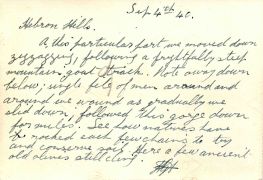 Sep 4th 40.
Hebron Hills.
At this particular part we moved down
zigzagging, following a frightfully steep
mountain goat track. Note away down
below, single file of men around and
around we wound as gradually we
slid down, followed this gorge down
for miles. See how natives have
rocked each few chains to try
and conserve soil. Here a few ancient
old olives still cling.